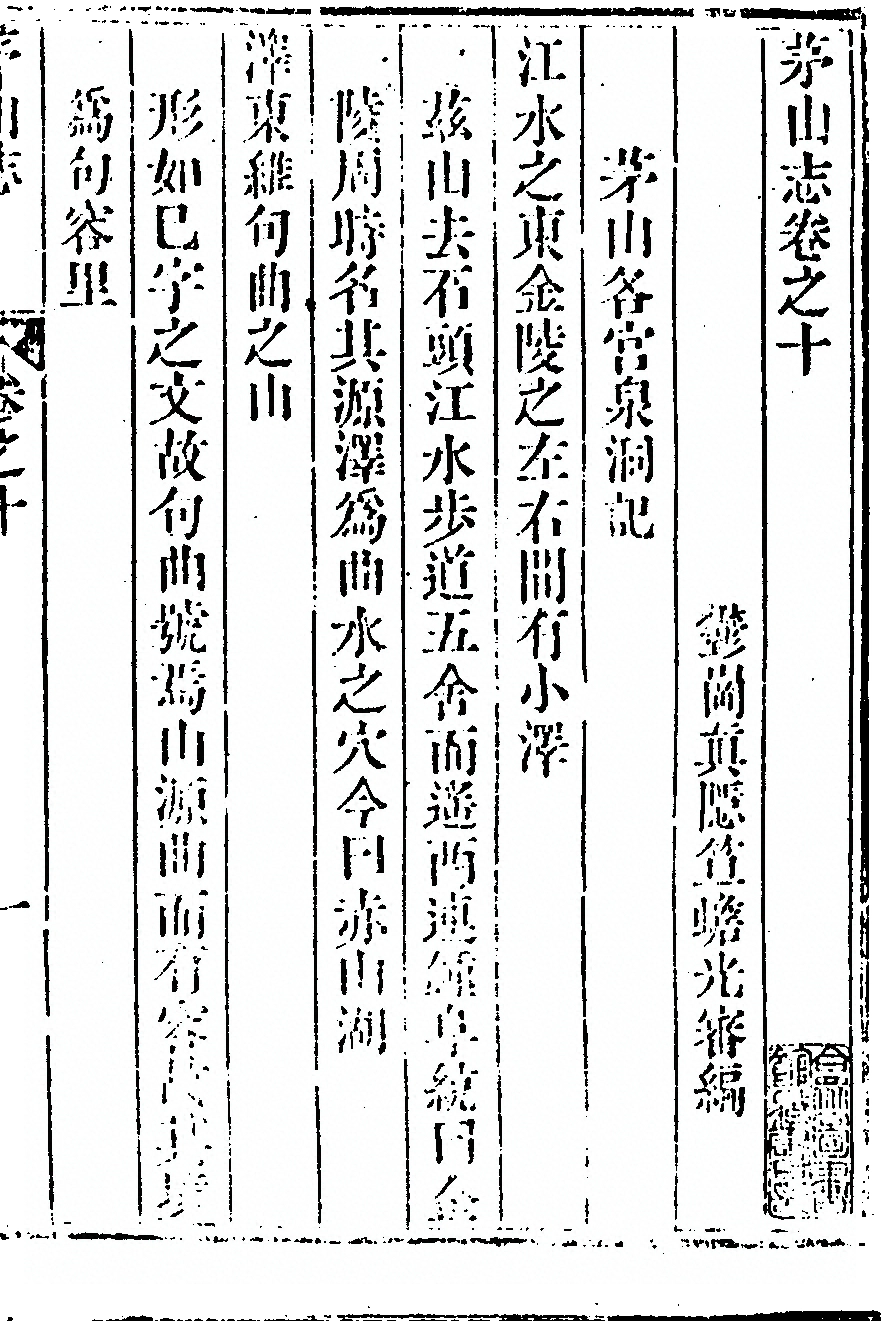 茅山志卷之十
鬱岡真隱笪蟾光審編
茅山各宮泉洞記
江水之東金陵之左右間有小澤
茲山去石頭江水步道五舍而遥西連鍾阜統曰金
陵周時名其源澤爲曲水之穴今曰赤山湖
澤東維句曲之山
形如巳字之文故句曲號焉山源曲而有容
爲句容里
茅山志
卷之十
一